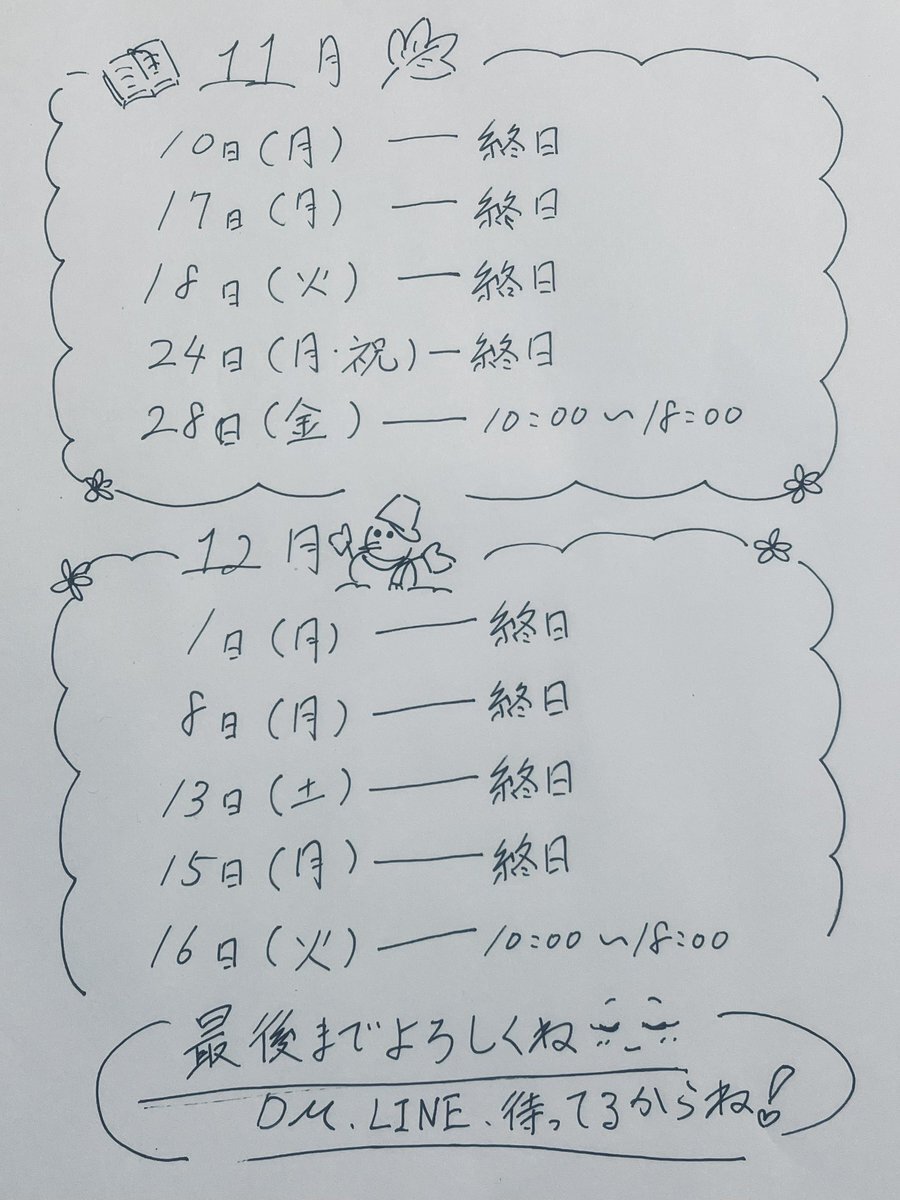 11月
10日(月) — 終日
17日(月) — 終日
18日(火) — 終日
24日(月・祝) — 終日
28日(金) — 10:00〜18:00
12月
1日(月) — 終日
8日(月) — 終日
13日(土) — 終日
15日(月) — 終日
16日(火) — 10:00〜18:00
最後までよろしくね
DM、LINE、待ってるからね!